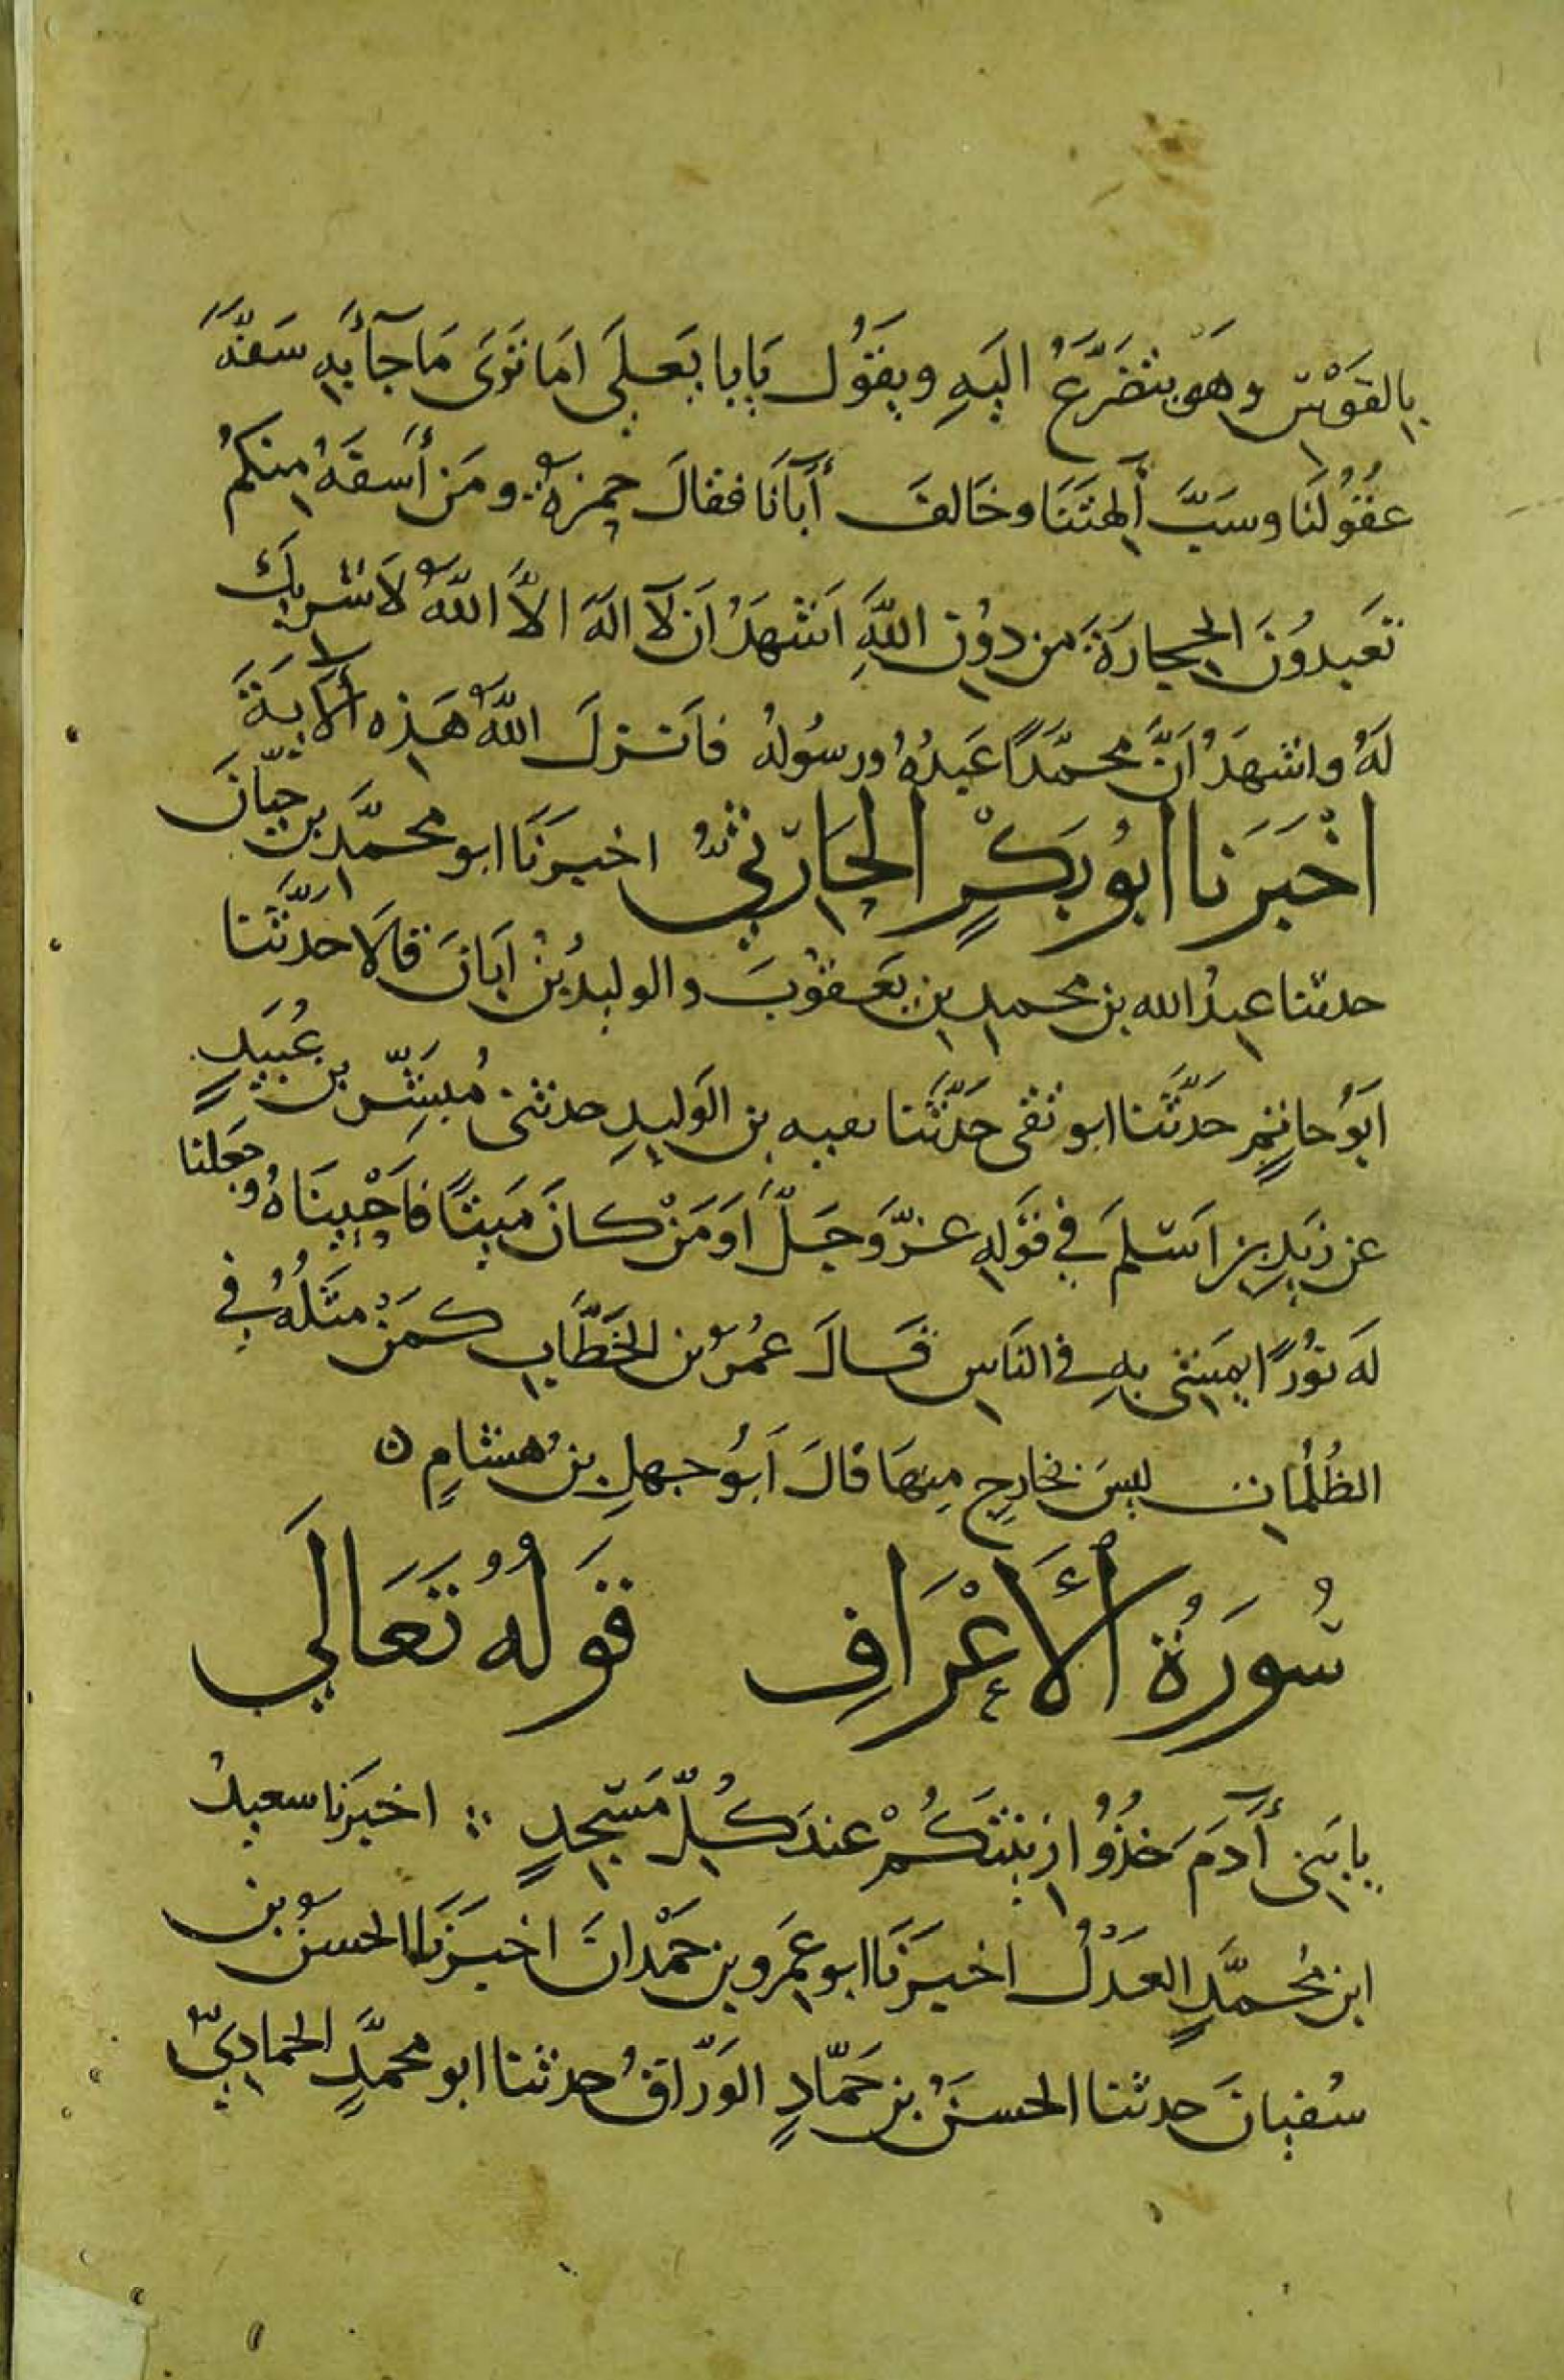 بِالقَوْسِ وهوَ يتضَرَّعُ اليَهِ ويَقُول يَا با يَعلَى امَا تَرَى مَا جآءَ بِهِ سَفَّهَ
عُقُولَنا وسَبَّ ألِهتَنَا وخَالفَ أبآنَا فقالَ حمزةُ ومَن أَسفَهُ مِنكمُ
تَعبدُونَ الحِجارَةَ مِن دوُنِ اللهِ اَشهَدُ ان لآ الهَ الاَّ اللهُ لاَ شرِيكَ
لَهُ واشهَدُ اَنَّ محمَّدًا عَبدُهُ ورسُولهُ فاَنزلَ اللهُ هَذِه ألآيةَ
اخْبَرَنا ابُو بَكْرٍ الحَارِثيُّ اخبرَنَا ابو محمَّد بن حيّانَ
حدثنا عبدُ الله بن محمدِ بنِ يَعقوُبَ والوليدُ بنُ اَبَانَ قالاَ حدَّثَنا
ابَوُ حاتمٍ حَدَّثَنا ابو تقى حَدَّثَنا بقيه بن الوَليدِ حدثنى مُبَشِّر بن عُبَيدٍ
عن زَيدِ بنِ اَسلمَ فِي قوَلهِ عزَّ وَجَلَّ اَوَمَنْ كانَ مَيتًا فاَحْيينَاهُ وجَعلنا
لَه نوُرًا يمَشى بِهِ في النَاسِ قالَ عُمرُ بن الخَطَّابِ كمَنْ مثَلُهُ في
الظُلُمَاتِ ليسَ بخارِجٍ مِنهَا قالَ اَبُو جهلِ بنُ هشامٍ ن
سُورَةُ ألأَعْرَافِ قَولهُ تَعَالَي
يا بَنِى أَدَمَ خذُوا زينتَكُمْ عندَ كُلِّ مَسجِدٍ اخبرَنا سعيدُ
ابن مُحمَّدٍ العَدْلُ اخبرَنَا ابو عَمرِو بن حَمْدانَ اخبرَنَا الحسنُ بن
سُفيانَ حدثنا الحسنُ بن حَمّادٍ الوَرّاقُ حدثنا ابو محمَّدٍ الحماديّ